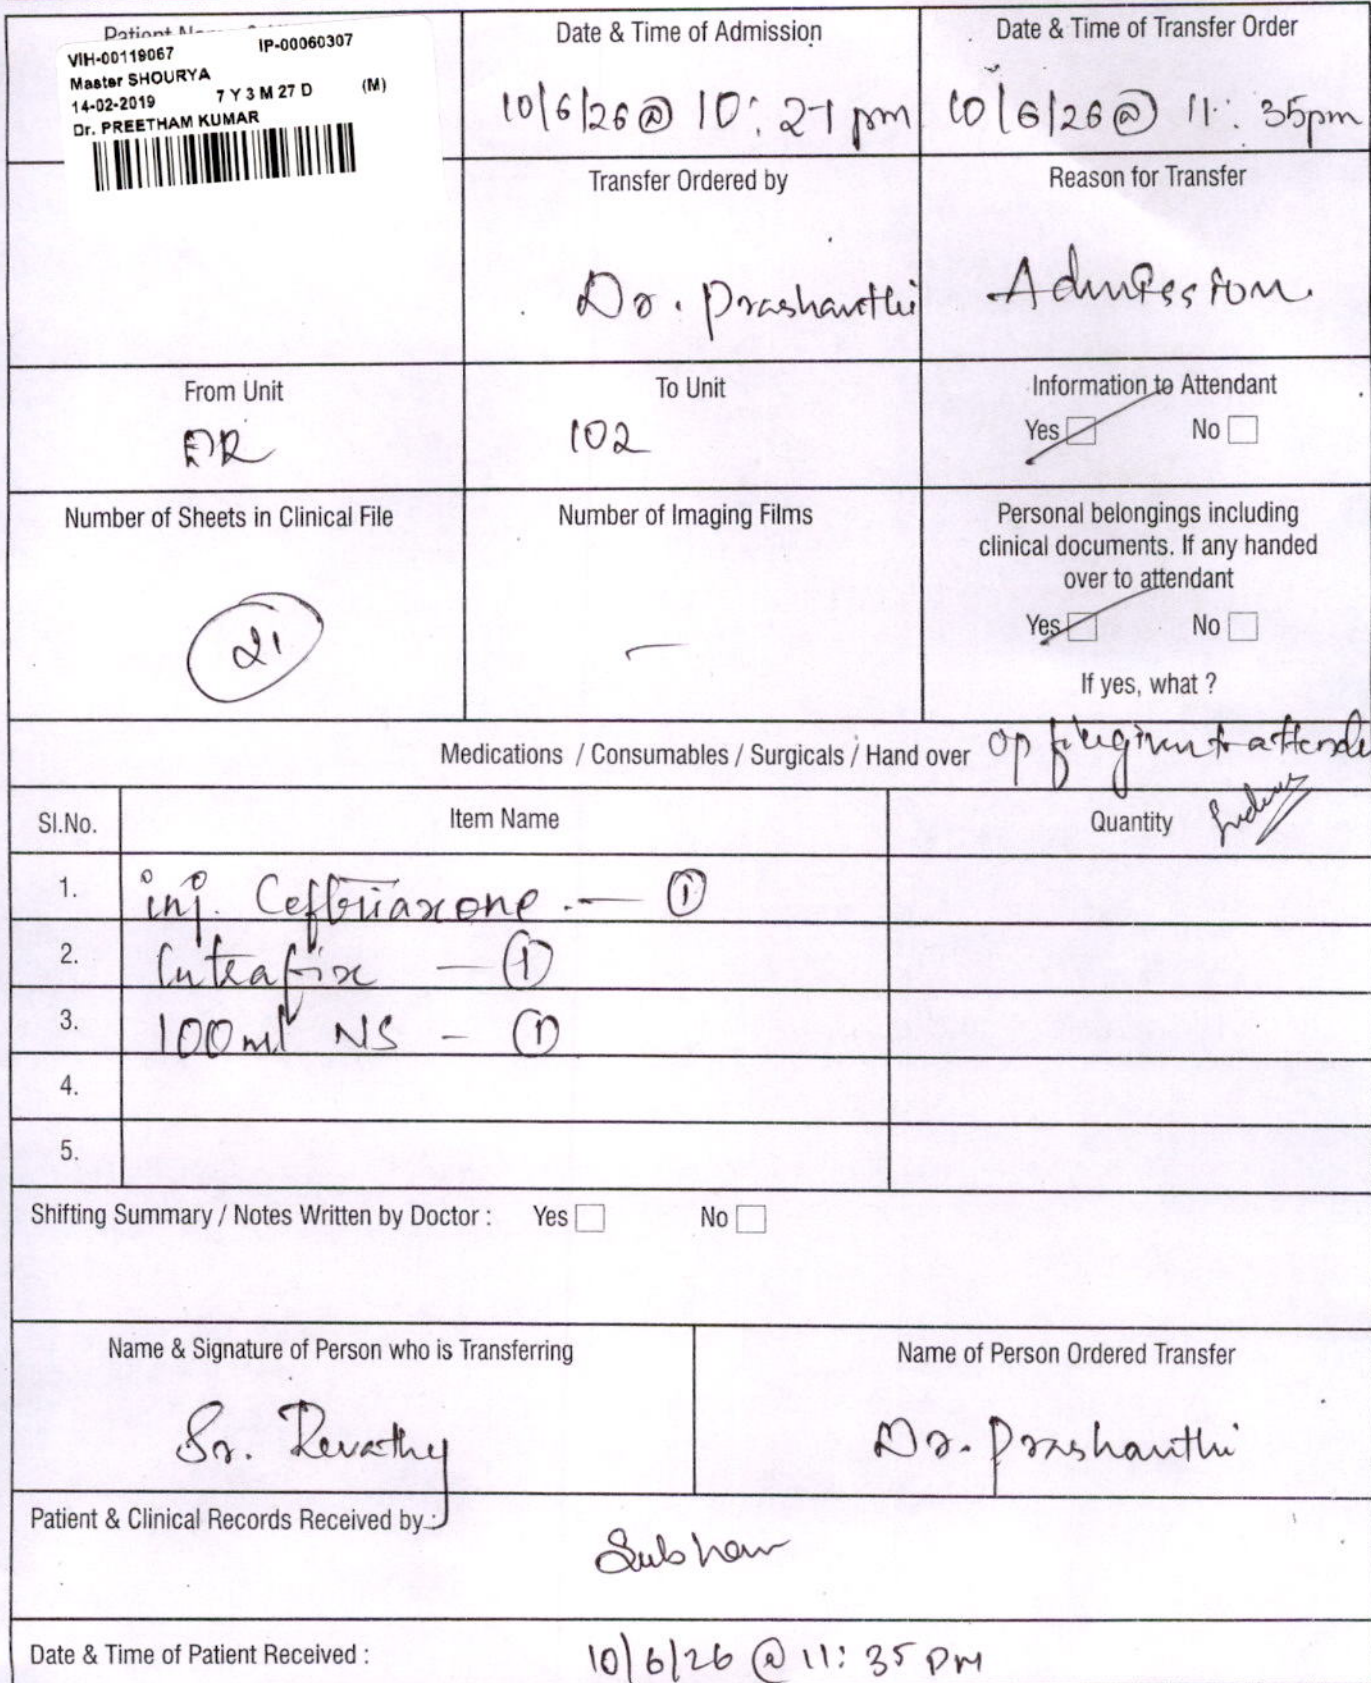 Patient N
VIH-00119067 IP-00060307
Master SHOURYA
14-02-2019 7 Y 3 M 27 D (M)
Dr. PREETHAM KUMAR
Date & Time of Admission
10/6/26 @ 10:27 pm
Date & Time of Transfer Order
10/6/26 @ 11:35pm
Transfer Ordered by
Dr. Prashanthi
Reason for Transfer
Admission.
From Unit
ER
To Unit
102
Information to Attendant
Yes No
Number of Sheets in Clinical File
21
Number of Imaging Films
—
Personal belongings including
clinical documents. If any handed
over to attendant
Yes No
If yes, what ?
Medications / Consumables / Surgicals / Hand over
op file given to attende
Sl.No. Item Name Quantity
1. inj. Ceftriaxone - 1
2. Intrafix - 1
3. 100ml NS - 1
4.
5.
Shifting Summary / Notes Written by Doctor : Yes No
Name & Signature of Person who is Transferring
Sr. Revathy
Name of Person Ordered Transfer
Dr. Prashanthi
Patient & Clinical Records Received by :
Subham
Date & Time of Patient Received : 10/6/26 @ 11:35 PM